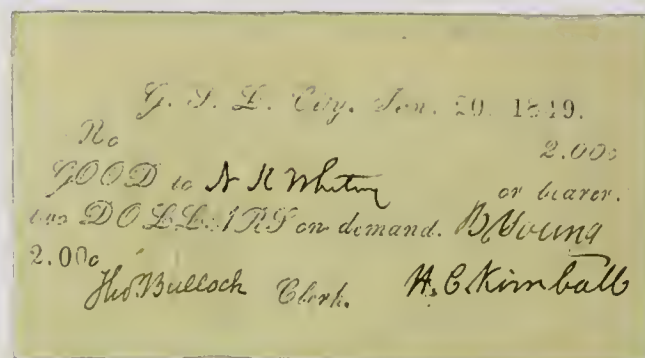 G. S. L. City, Jan. 20, 1849.
No 2.00c
GOOD to N K Whitney or bearer.
two DOLLARS on demand. B. Young
2.00c
Tho. Bullock Clerk. H. C. Kimball